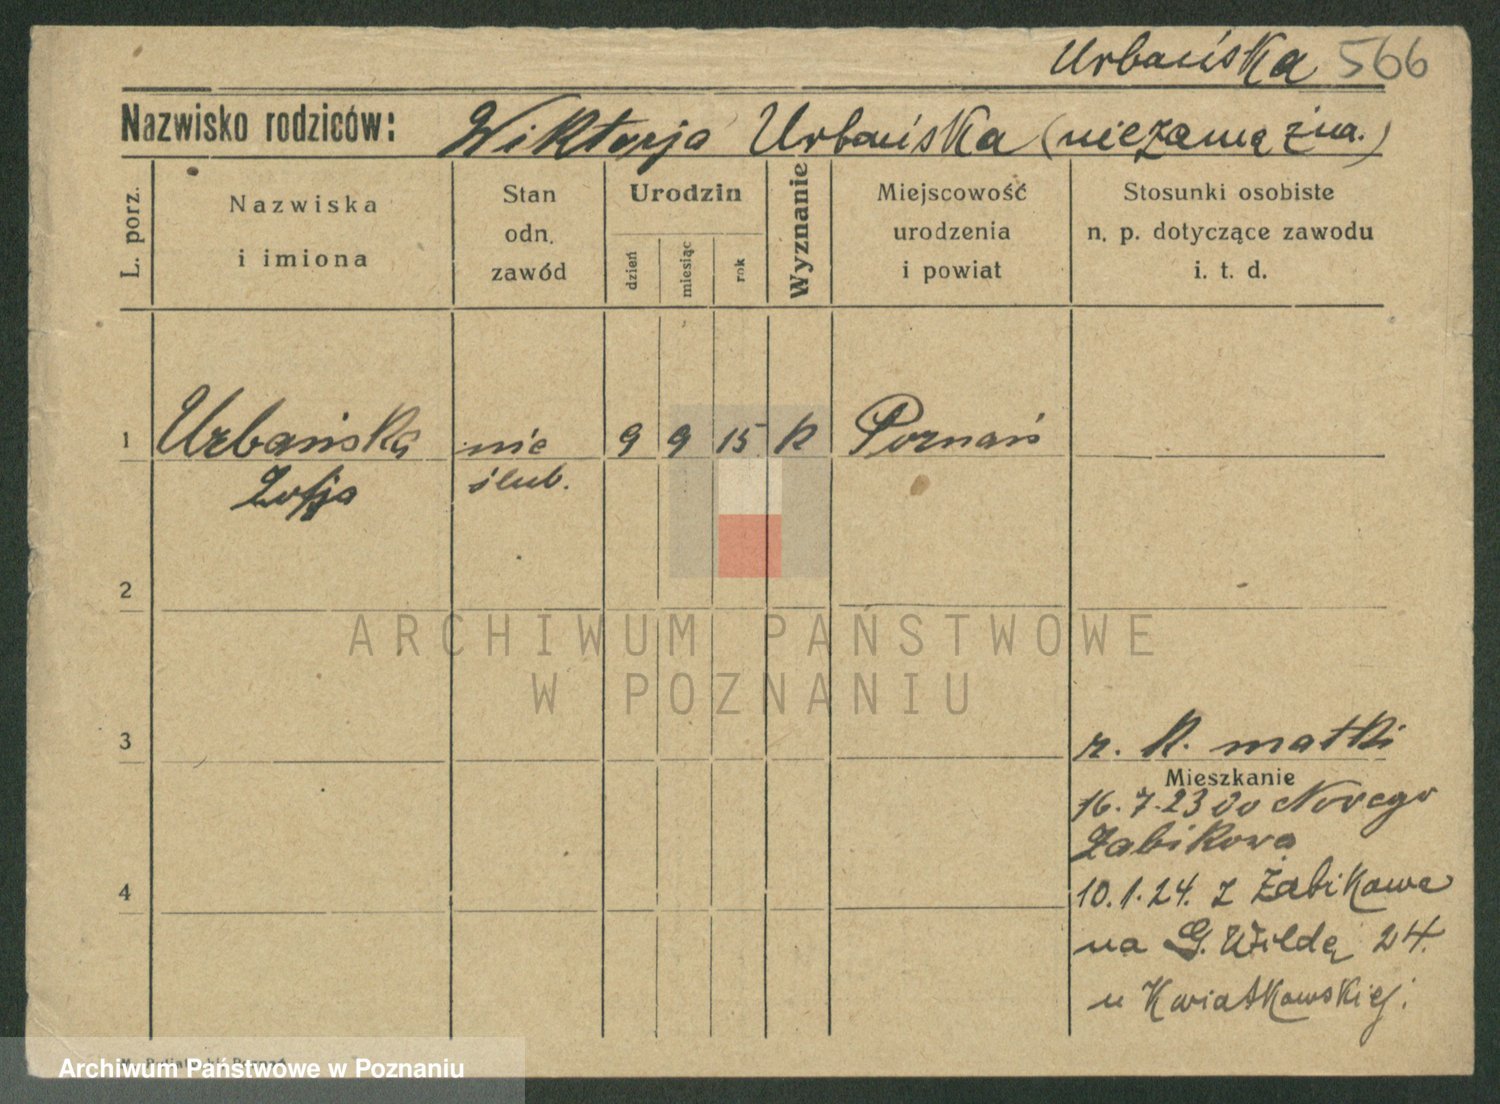 Urbańska 566
Nazwisko rodziców: Wiktorja Urbańska (niezamężna.)
L. porz.
Nazwiska
i imiona
Stan
odn.
zawód
Urodzin
dzień
miesiąc
rok
Wyznanie
Miejscowość
urodzenia
i powiat
Stosunki osobiste
n. p. dotyczące zawodu
i. t. d.
1 Urbańska nie 9 9 15 k Poznań
Zofja ślub.
2
ARCHIWUM PAŃSTWOWE
W POZNANIU
3 r. k. matki
Mieszkanie
16.7.23 do Nowego
Żabikowa
4 10.1.24. z Żabikowa
na G. Wildę 24.
u Kwiatkowskiej.
Archiwum Państwowe w Poznaniu